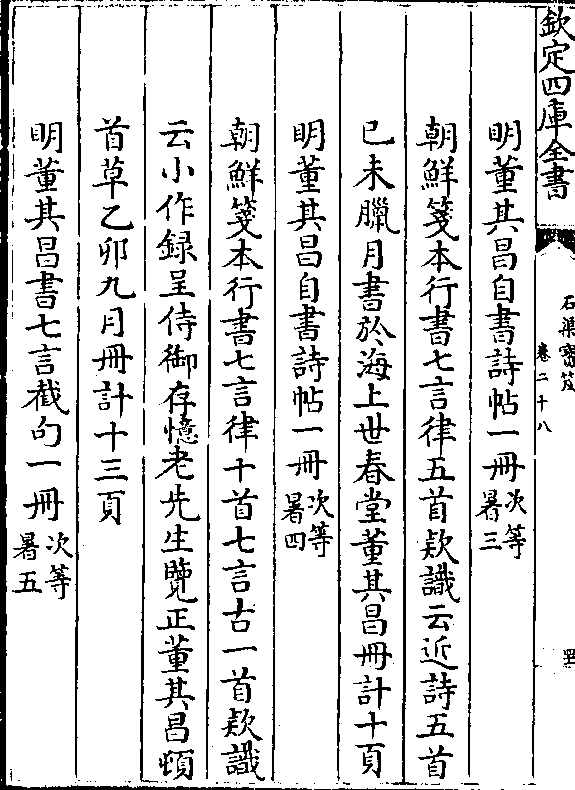 欽定四庫全書
石渠寶笈
卷二十八
明董其昌自書詩帖一冊次等暑三
朝鮮箋本行書七言律五首欵識云近詩五首
已未臘月書於海上世春堂董其昌冊計十頁
明董其昌自書詩帖一冊次等暑四
朝鮮箋本行書七言律十首七言古一首欵識
云小作録呈侍御存憶老先生覽正董其昌頓
首草乙卯九月冊計十三頁
明董其昌書七言截句一冊次等暑五